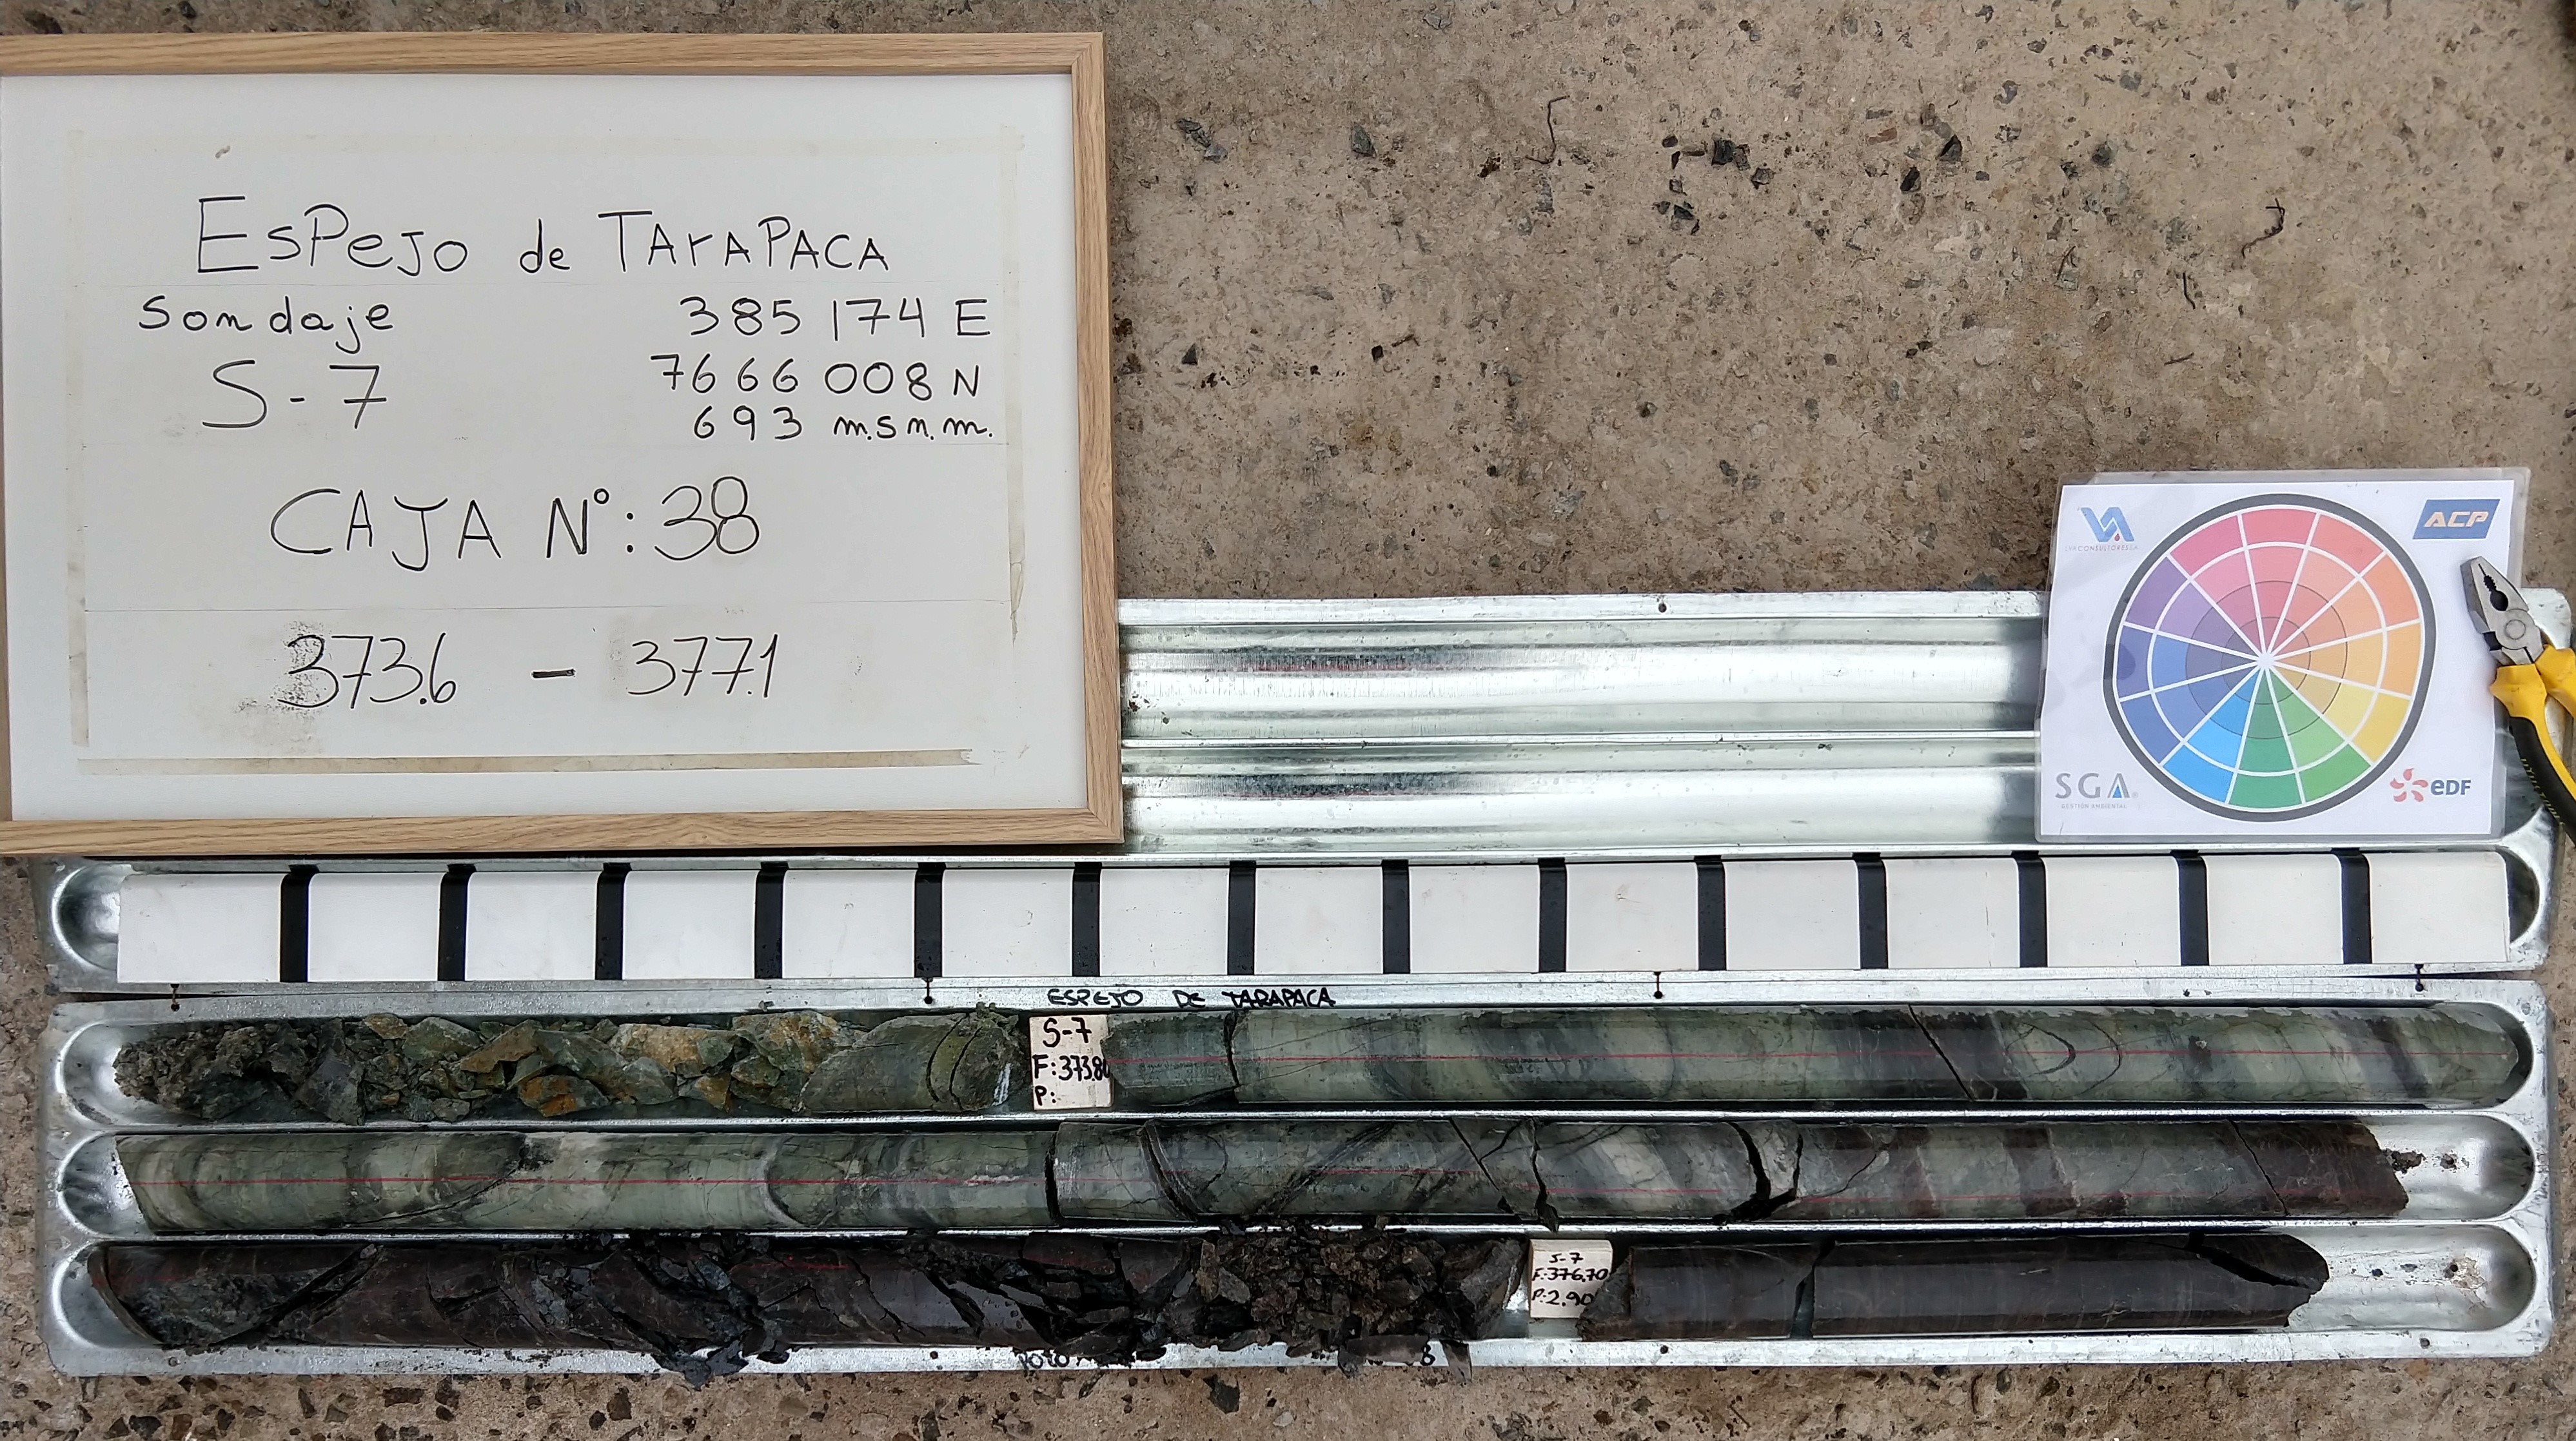 ESPEJO de TArAPACA
Sondaje
385 174 E
S-7
7666 008 N
693 m.s n. m.
CAJA N°: 38
373.6 - 377.1
VA
CONSULTORES
ACP
SGA
GESTIÓN AMBIENTAL
eDF
ESPEJO DE TARAPACA
S-7
F:373.80
P:
S-7
F:376.70
P:2.90